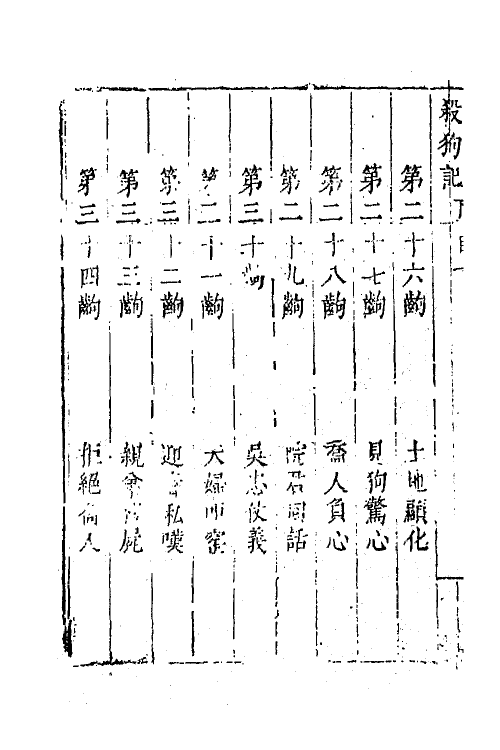 殺狗記
第二十六齣 土地顯化
第二十七齣 見狗驚心
第二十八齣 喬人負心
第二十九齣 院君回話
第三十齣 吳忠仗義
第三十一齣 夫婦叩窰
第三十二齣 迎春私嘆
第三十三齣 親會移屍
第三十四齣 拒絕喬人